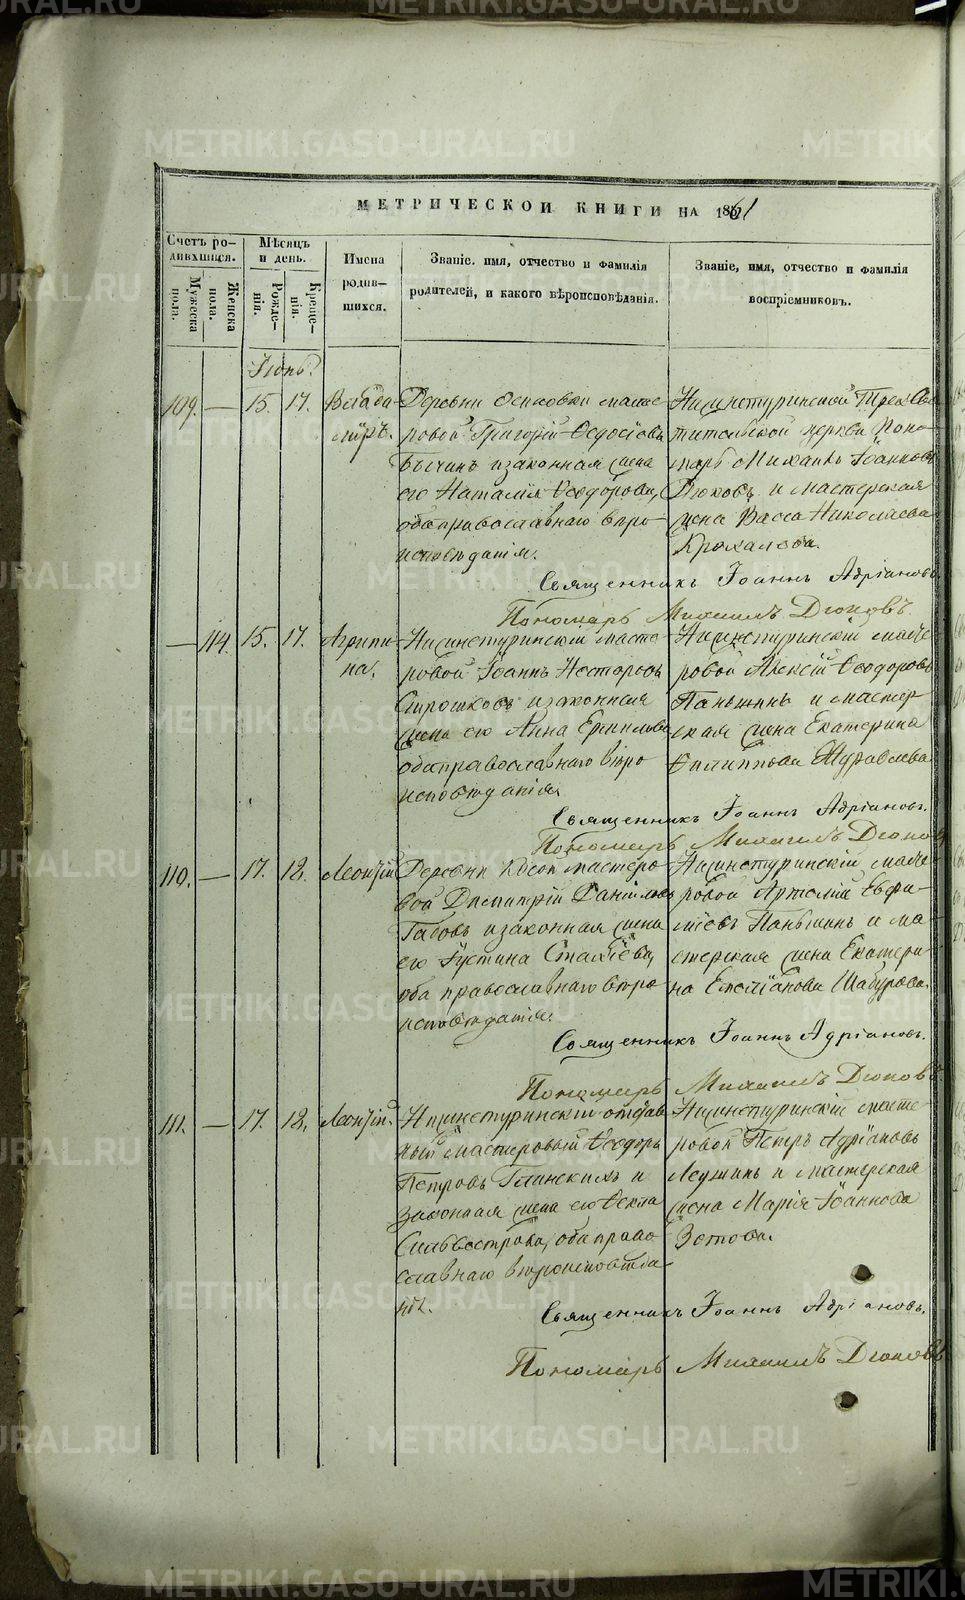 МЕТРИЧЕСКОЙ КНИГИ НА 1861
Счетъ ро-
дившихся.
Мужеска пола.
Женска пола.
Мѣсяцъ и день.
Рожде-
нія.
Креще-
нія.
Имена
родив-
шихся.
Званіе, имя, отчество и фамилія
родителей, и какого вѣроисповѣданія.
Званіе, имя, отчество и фамилія
воспріемниковъ.
Іюнь.
109. — 15. 17. Влади-
міръ.
Деревни Осиповки масте-
ровой Григорій Ѳедосіевъ
и законная жена
его Наталія Ѳеодорова,
оба православнаго вѣро-
исповѣданія.
Нижнетуринской Трех Свя-
тительской церкви Поно-
марь Михаилъ Іоанновъ
Дюковъ и мастерская
жена Васса Николаева
Крохалева.
Священникъ Іоаннъ Адріановъ.
Пономарь Михаилъ Дюковъ.
— 114. 15. 17. Агрипи-
на.
Нижнетуринскій масте-
ровой Іоаннъ Несторовъ
Сыромжковъ и законная
жена его Анна Ермилова
оба православнаго вѣро
исповѣданія.
Нижнетуринскій масте-
ровой Алексій Ѳеодоровъ
Паньшинъ и мастер-
ская жена Екатерина
Филиппова Журавлева
Священникъ Іоаннъ Адріановъ.
Пономарь Михаилъ Дюковъ
110. — 17. 18. Леонтій
Деревни Косой мастеро-
вой Димитрій Даніиловъ
Габовъ и законная жена
его Іустина
оба православнаго вѣро
исповѣданія.
Нижнетуринскій масте-
ровой Артемій Евфи-
міевъ Паньшинъ и ма-
стерская жена Екатери-
на Емеліанова Шабурова.
Священникъ Іоаннъ Адріановъ.
Пономарь Михаилъ Дюковъ
111. — 17. 18. Леонтій.
Нижнетуринскій отстав-
ный мастеровый Ѳеодоръ
Петровъ Глинскихъ и
законная жена его Ѳекла
Сильвестрова, оба право
славнаго вѣроисповѣда-
нія.
Нижнетуринскій масте-
ровой Петръ Адріановъ
и мастерская
жена Марія Іоаннова
Зотова.
Священникъ Іоаннъ Адріановъ.
Пономарь Михаилъ Дюковъ
METRIKI.GASO-URAL.RU